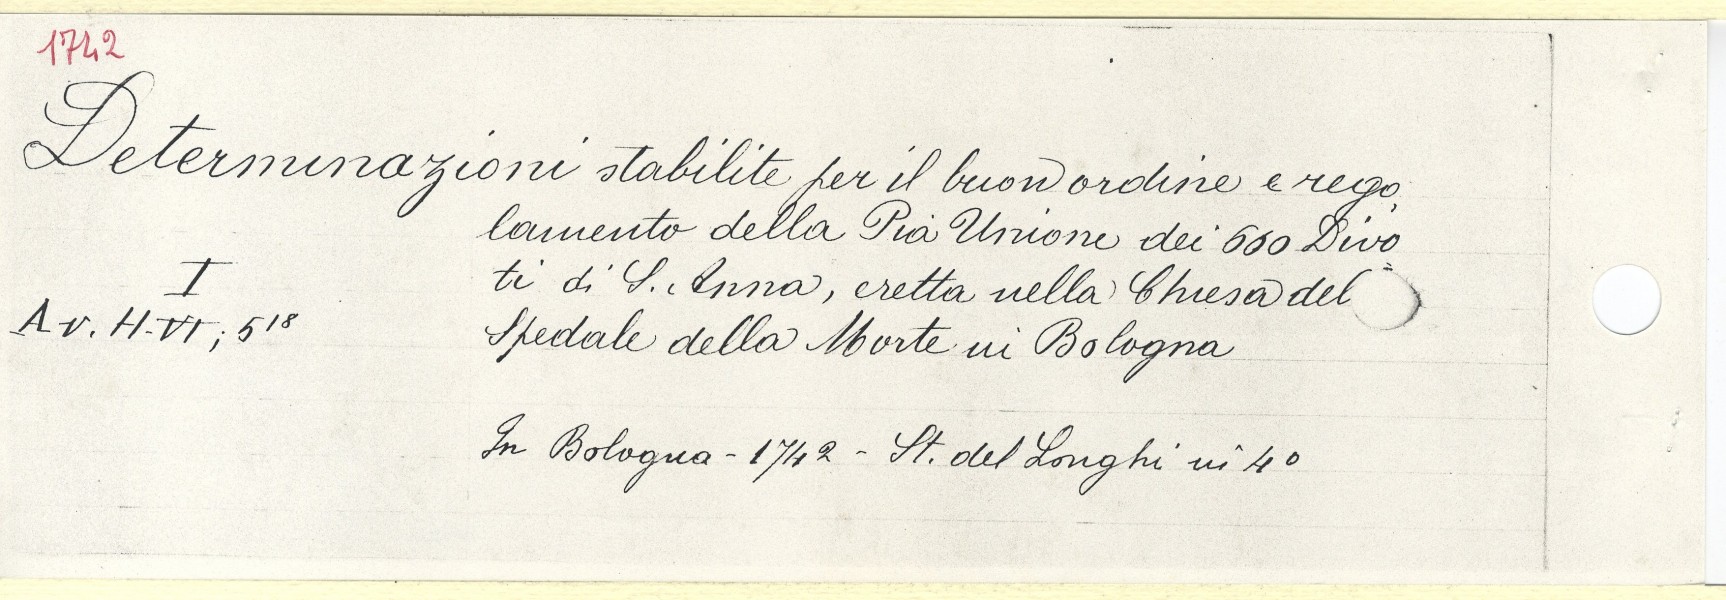 1742
Determinazioni stabilite per il buon ordine e rego
lamento della Pia Unione dei 600 Divo
ti di S. Anna, eretta nella Chiesa del
I
A v. H-VI; 5 18
Spedale della Morte in Bologna
In Bologna - 1742 - St. del Longhi in 4º